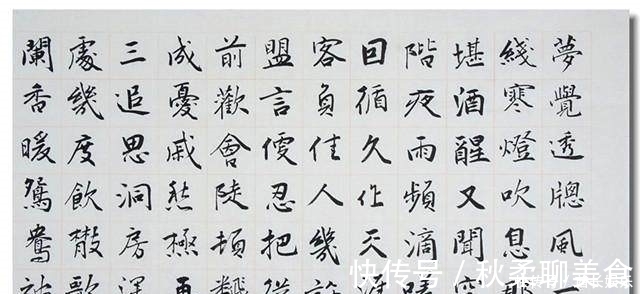 夢覺透牕風一
綫寒燈吹息
堪酒醒又聞
階夜雨頻滴
因循久作天
客負佳人幾
盟言便忍把從
前歡會陡頓
成憂戚愁極再
三追思洞房
處幾度飲散歌
闌香暖鴛鴦
快传号 / 秋柔聊美食